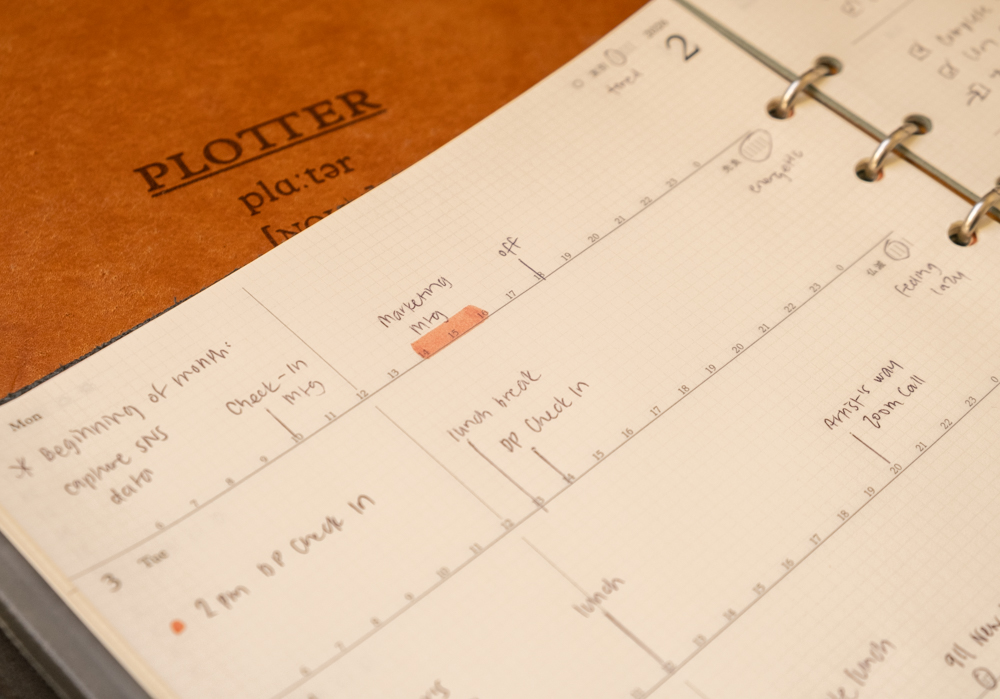 PLOTTER
plɑːtər
[NOU
2
tired
Mon
* Beginning of month:
capture SNS
data
Check-In
Mtg
Marketing
Mtg
off
energetic
6 7 8 9 10 11 12 13 14 15 16 17 18 19 20 21 22 23 0
3
Tue
2 pm DP Check In
lunch break
DP Check In
feeling
lazy
6 7 8 9 10 11 12 13 14 15 16 17 18 19 20 21 22 23 0
lunch
Artist's way
Zoom Call
13 14 15 16 17 18 19 20 21 22 23 0
lunch
911
Complete